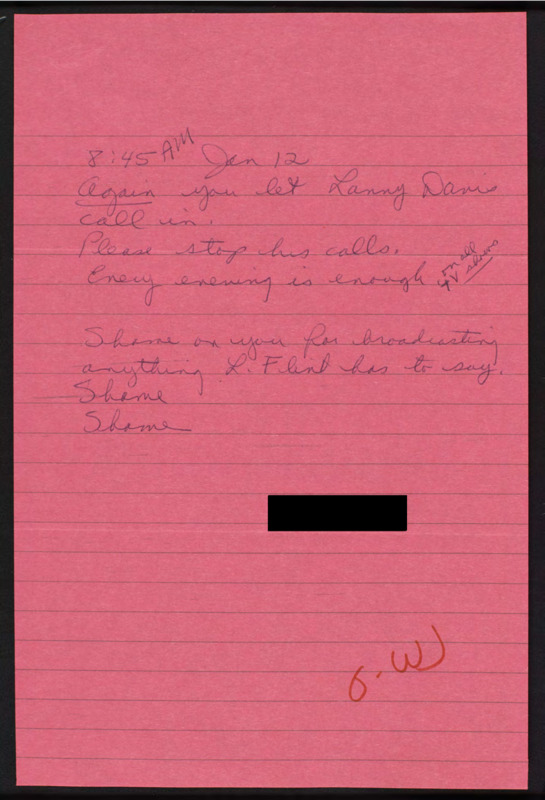 8:45 AM Jan 12
Again you let Lanny Davis
call in.
Please stop his calls.
Every evening is enough on all TV shows
Shame on you for broadcasting
anything L. Flint has to say.
Shame
Shame